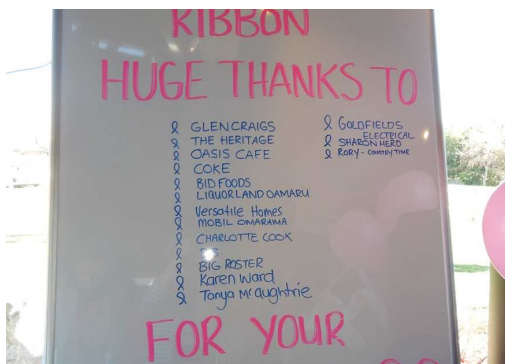 RIBBON
HUGE THANKS TO
GLENCRAIGS
THE HERITAGE
OASIS CAFE
COKE
BID FOODS
LIQUORLAND OAMARU
Versatile Homes
MOBIL OMARAMA
CHARLOTTE COOK
BIG ROSTER
Karen Ward
Tonya McAughtrie
GOLDFIELDS
ELECTRICAL
SHARON HERD
RORY - COUNTRY TIME
FOR YOUR